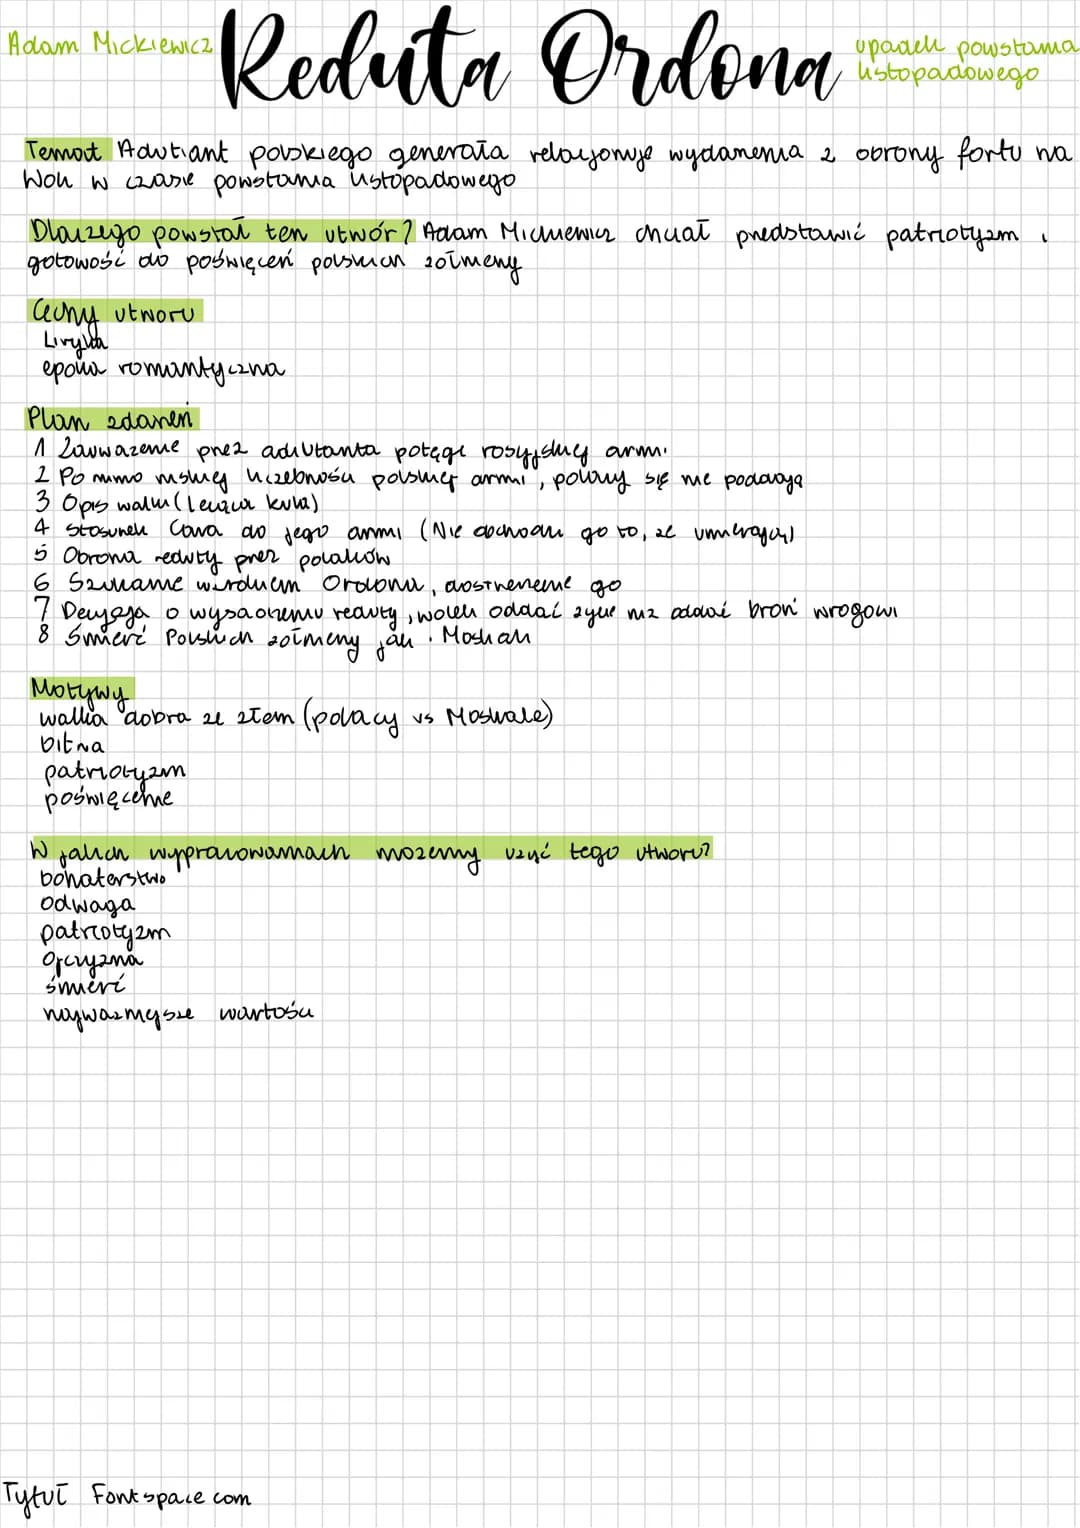 Adam Mickiewicz
Reduta Ordona
upadek powstania
listopadowego
Temat Adutiant polskiego generała relacjonuje wydarzenia z obrony fortu na
Woli w czasie powstania listopadowego
Dlaczego powstał ten utwór? Adam Mickiewicz chciał przedstawić patriotyzm i
gotowość do poświęceń polskich żołnierzy
Cechy utworu
Liryka
epoka romantyczna
Plan zdarzeń
1 Zauważenie przez adiutanta potęgi rosyjskiej armii
2 Po mimo niskiej liczebności polskiej armii, polacy się nie poddają
3 Opis walki (lecąca kula)
4 Stosunek Cara do jego armii (Nie obchodzi go to, że umierają)
5 Obrona reduty przez polaków
6 Szukanie wzrokiem Ordona, dostrzeżenie go
7 Decyzja o wysadzeniu reduty, woleli oddać życie niż oddać broń wrogowi
8 Śmierć Polskich żołnierzy jak i Moskali
Motywy
walka dobra ze złem (polacy vs Moskale)
bitwa
patriotyzm
poświęcenie
W jakich wypracowaniach możemy użyć tego utworu?
bohaterstwo
odwaga
patriotyzm
Ojczyzna
śmierć
najważniejsze wartości
Tytuł Fontspace com